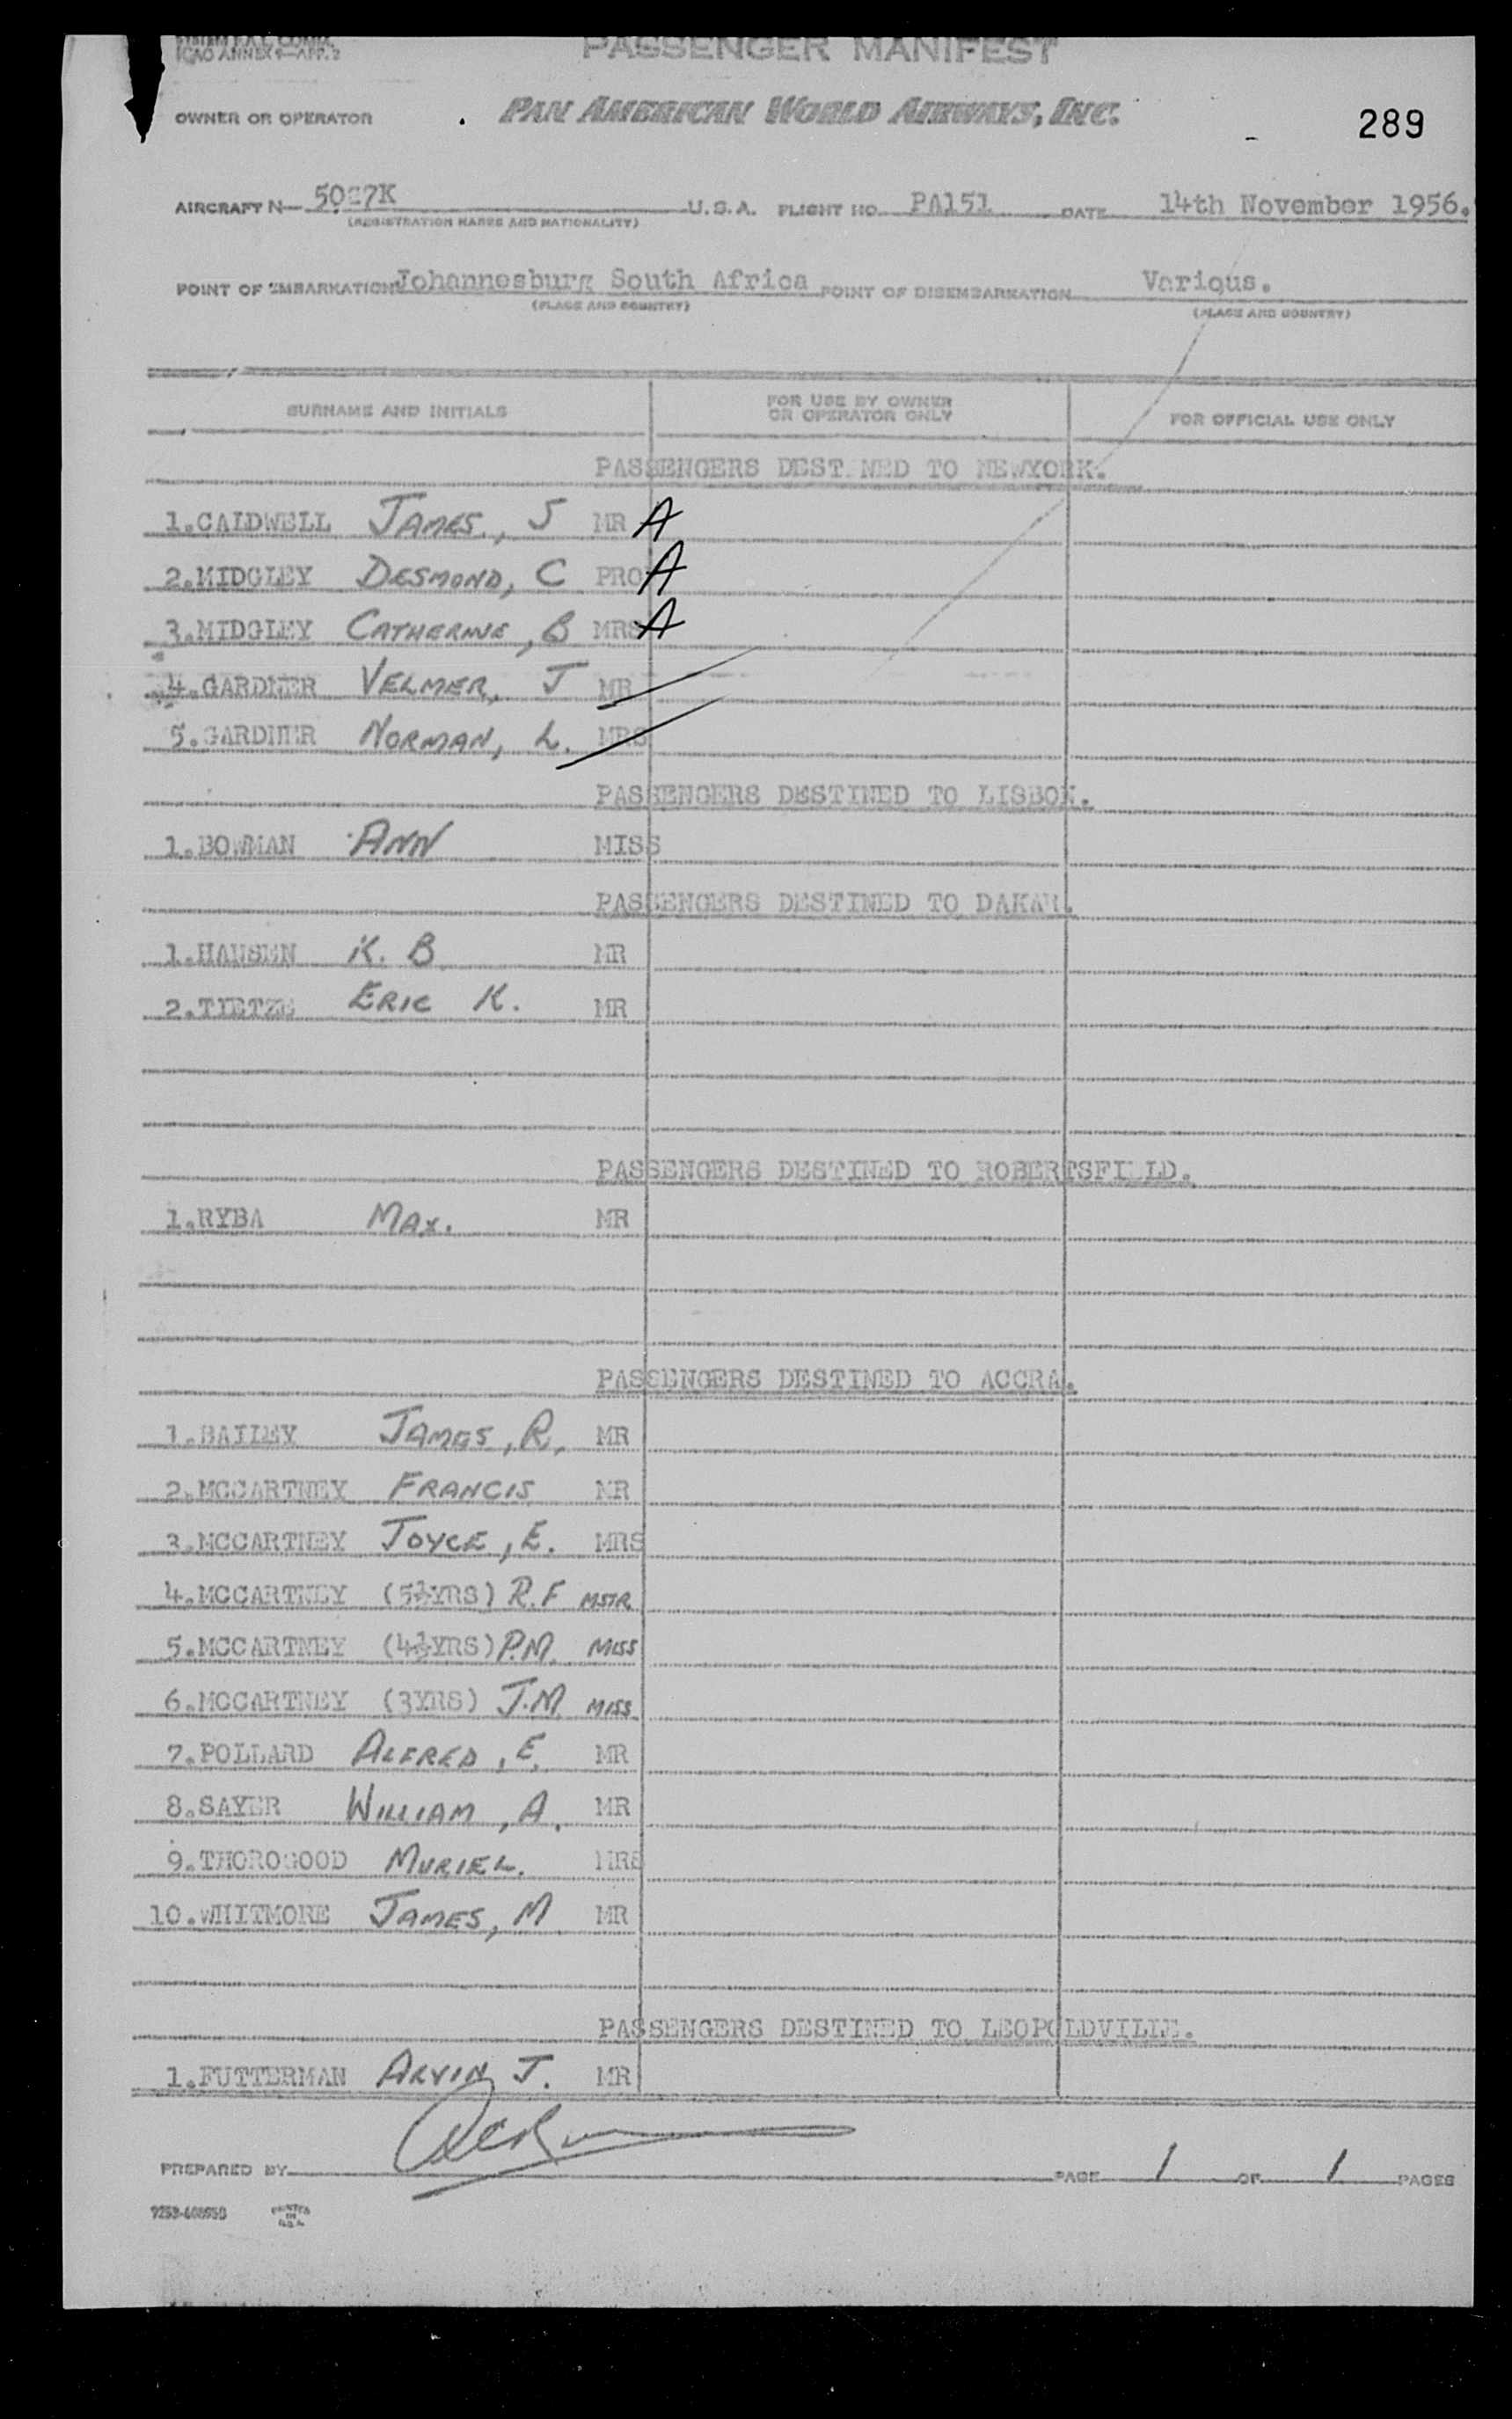 ICAO ANNEX 9—APP. 2
PASSENGER MANIFEST
OWNER OR OPERATOR PAN AMERICAN WORLD AIRWAYS, INC.
289
AIRCRAFT N— 5027K U.S.A. FLIGHT NO. PA151 DATE 14th November 1956.
(REGISTRATION MARKS AND NATIONALITY)
POINT OF EMBARKATION Johannesburg South Africa POINT OF DISEMBARKATION Various.
(PLACE AND COUNTRY) (PLACE AND COUNTRY)
SURNAME AND INITIALS FOR USE BY OWNER OR OPERATOR ONLY FOR OFFICIAL USE ONLY
PASSENGERS DEST NED TO NEWYORK.
1.CALDWELL JAMES, S MR A
2.MIDGLEY DESMOND, C PRO A
3.MIDGLEY CATHERINE, B MRS A
4.GARDNER VELMER, J MR
5.GARDNER NORMAN, L. MRS
PASSENGERS DESTINED TO LISBON.
1.BOWMAN ANN MISS
PASSENGERS DESTINED TO DAKAR.
1.HAUSEN K. B MR
2.TIETZE ERIC K. MR
PASSENGERS DESTINED TO ROBERTSFIELD.
1.RYBA MAX. MR
PASSENGERS DESTINED TO ACCRA.
1.BAILEY JAMES, R, MR
2.MCCARTNEY FRANCIS MR
3.MCCARTNEY JOYCE, E. MRS
4.MCCARTNEY (5½YRS) R.F MSTR
5.MCCARTNEY (4½YRS) P.M. MISS
6.MCCARTNEY (3YRS) J.M. MISS
7.POLLARD ALFRED, E. MR
8.SAYER WILLIAM, A. MR
9.THOROGOOD MURIEL. MRS
10.WHITMORE JAMES, M MR
PASSENGERS DESTINED TO LEOPOLDVILLE.
1.FUTTERMAN ARVIN J. MR
PREPARED BY PAGE 1 OF 1 PAGES
PRINTED IN U.S.A.